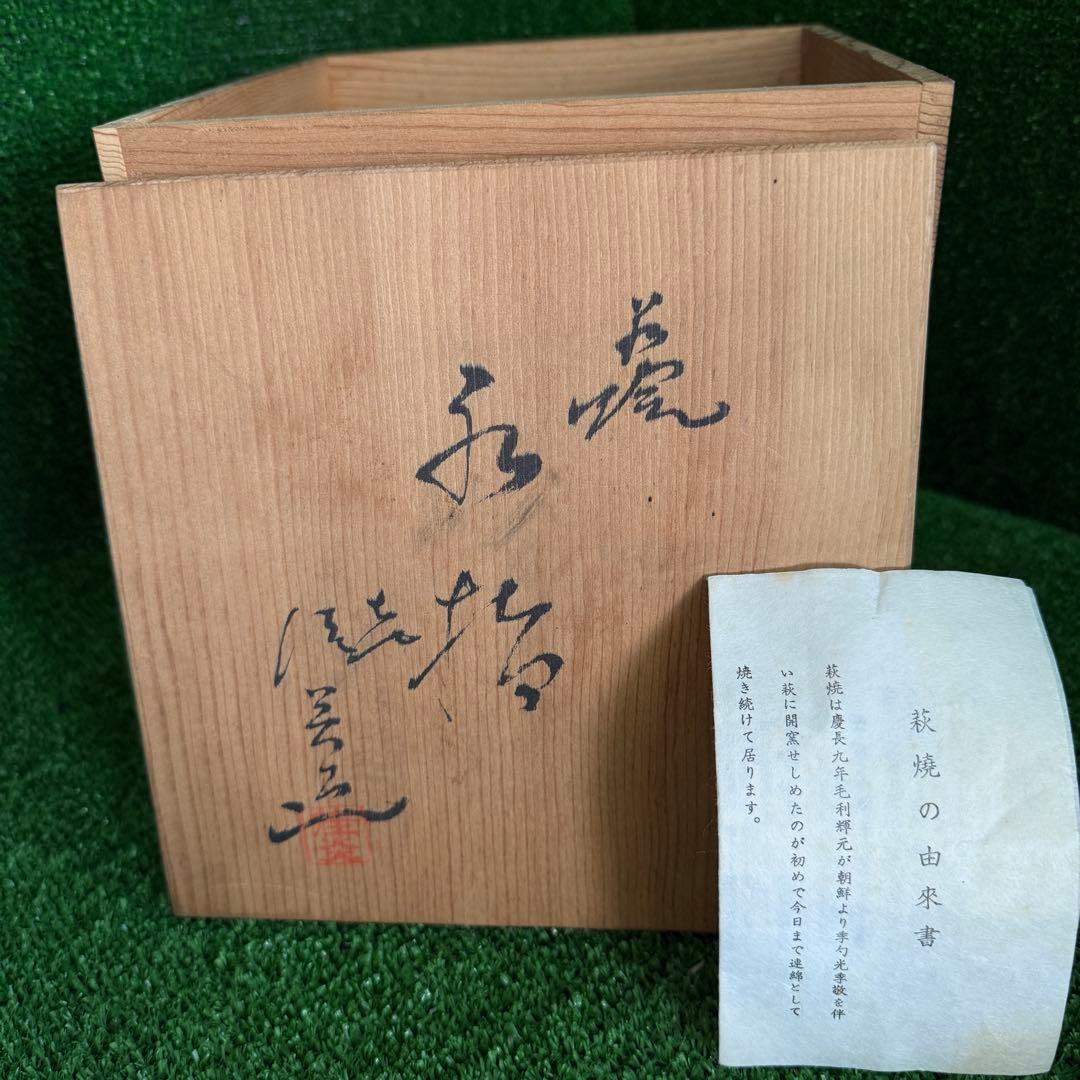 水指
萩燒の由來書
萩焼は慶長九年毛利輝元が朝鮮より季勺光季敬を伴
い萩に開窯せしめたのが初めで今日まで連綿として
焼き続けて居ります。